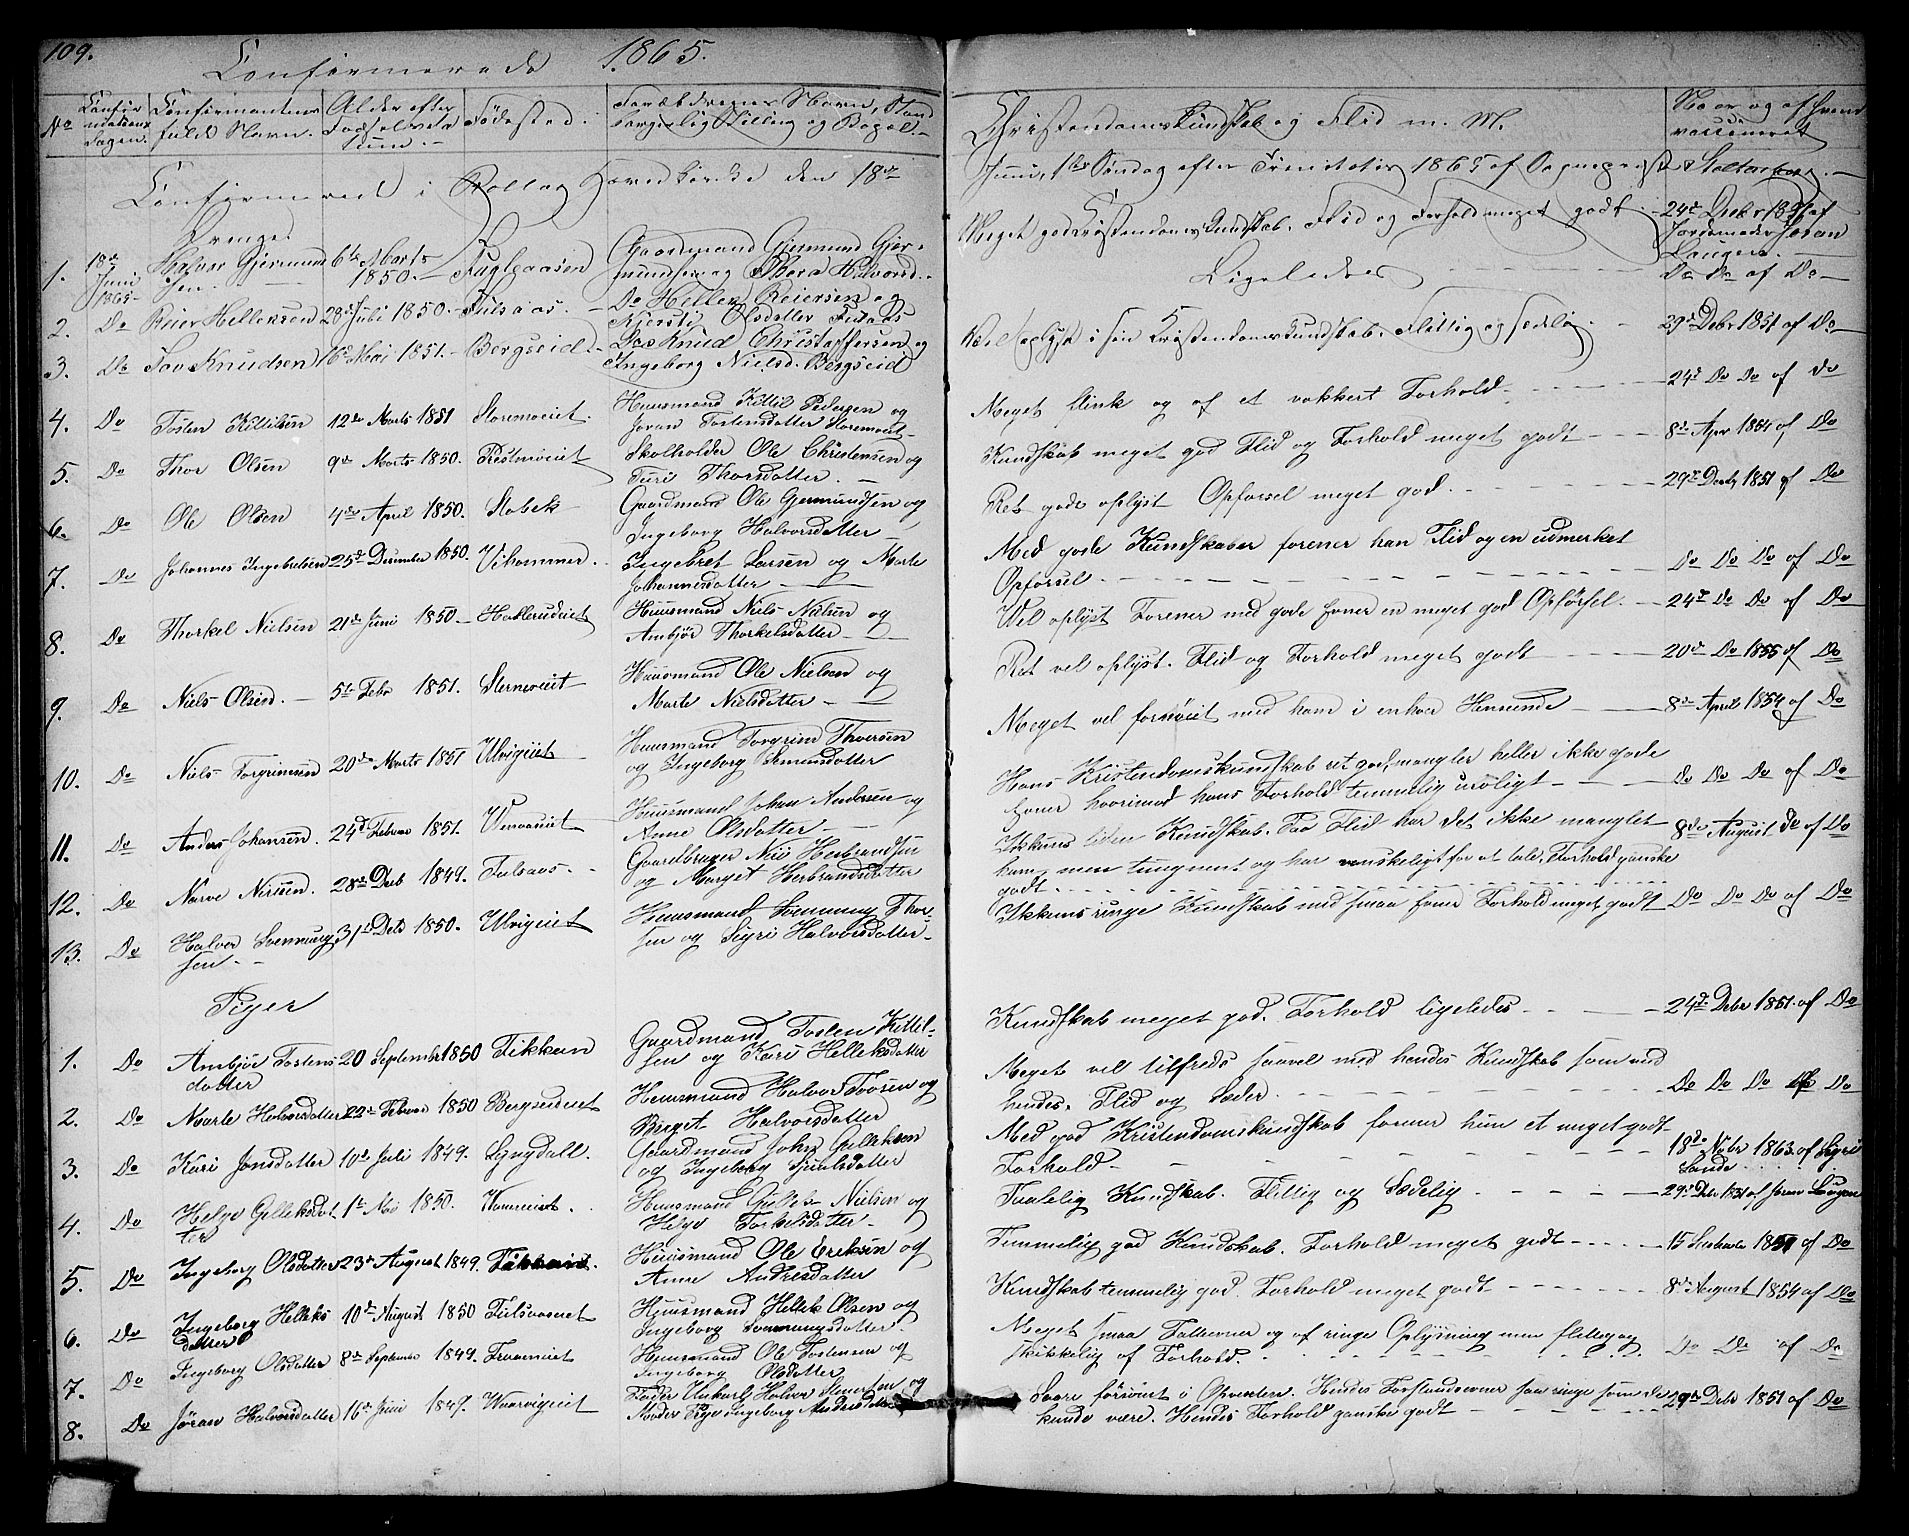 109.
Confirmerede 1865.
No
Confirmationens Dagen.
Confirmantens fulde Navn.
Alder efter Fødselsdatum.
Fødested.
Forældrenes Navn, Stand borgerlig Stilling og Bopæl.
Christendomskundskab og Flid m. M.
Naar og af hvem vaccineret
Confirmeret i Rollag Hovedkirke den 18de
Juni, 1ste Søndag efter Trinitatis 1865 af Sognepræst Stoltenberg.
Drenge.
1. 18de Juni 1865 Halvor Gjermundsen. 6te Marts 1850. Fuglaasen Gaardmand Gjermund Gjermundsen og Halvorsd. Meget god Kristendoms Kundskab. Flid og Forhold meget godt. 24de Decbr 1851 af Jordemoder Joran Laugen.
2. Do Reier Helleksen 28de Juli 1850. Fulsaas. Do Hellek Reiersen og Kjersti Olsdatter Fulsaas Ligeledes Do Do af Do
3. Do Tov Knudsen 16de Mai 1851. Bergseid. Do Knud Christoffersen og Ingeborg Nielsd. Bergseid Vel oplyst i sin Kristendomskundskab. Flittig og sædelig. 29de Debr 1851 af Do
4. Do Tosten Kittilsen 12de Marts 1851 Storemoeiet. Huusmand Kittil Pedersen og Joran Tostensdatter Storemoeit Meget flink og af et vakkert Forhold. 24de Do Do af do
5. Do Thor Olsen 9de Marts 1850. Skolholder Ole Christensen og Turi Thorsdatter. Kundskab meget god Flid og Forhold meget godt 8de Apr 1864 af Do
6. Do Ole Olsen 4de April 1850. Stobek Gaardmand Ole Gjermundsen og Ingeborg Halvorsdatter Ret gode oplyst Opførsel meget god. 29de Decbr 1851 af Do
7. Do Johannes Ingebretsen 25de December 1850. Vihammer. Ingebret Larsen og Marte Johannesdatter Med gode Kundskaber forener han Flid og en udmerket Opførsel. Do Do Do af Do
8. Do Thorkel Nielsen 21de Juni 1850. Huusmand Niels Nielsen og Ambjør Thorkelsdatter Vel oplyst Forener med gode Evner en meget god Opførsel. 24de Do Do af Do
9. Do Niels Olsen. 5te Febr 1851. Sterneeiet Huusmand Ole Nielsen og Marte Nielsdatter Ret vel oplyst. Flid og Forhold meget godt 20de Do 1855 af Do
10. Do Niels Torgrimsen 20de Marts 1851 Ulvigeiet Huusmand Torgrim Thorsen og Ingeborg Semundsdatter Meget vel fornøiet med ham i enhver Henseende 8de April 1854 af Do
11. Do Anders Johansen. 24de Februar 1851. Huusmand Johan Andersen og Anne Olsdatter Hans Kristendomskundskab ret god, mangler heller ikke gode Evner hvorimod hans Forhold temmelig uroligt Do Do Do af Do
12. Do Narve Nirisen. 28de Decb 1849. Fulsaas. Gaardbruger Niri Herbrandsen og Margit Herbrandsdatter Ikkuns liden Kundskab. Paa Flid har det ikke manglet ham, men tungnemt og har vanskeligt for at tale, Forhold ganske godt 8de August do af Do
13. Do Halvor Svenningsen 31te Debr 1850. Ulvigeiet Huusmand Svenning Thorsen og Sigri Halvorsdatter Ikkuns ringe Kundskab med smaa Evner Forhold meget godt Do Do Do af Do
Piger
1. Do Ambjør Tostensdatter 20 September 1850 Fikkan Gaardmand Tosten Kittelsen og Kari Helleksdatter Kundskab meget god. Forhold ligeledes 24de Debr 1851 af Do
2. Do Marte Halvorsdatter 22de Februar 1850 Bergseideiet Huusmand Halvor Tovsen og Birget Halvorsdatter Meget vel tilfreds saavel med hendes Kundskab som med hendes Flid og Sæder. Do Do Do af Do
3. Do Kari Jonsdatter 10de Juli 1849. Lyngdall. Gaardmand John Gulleksen og Ingeborg Sjulsdatter Med god Kristendomskundskab forener hun et meget godt Forhold 18de Nobr 1863 af Sigri Sande
4. Do Helge Gulleksdatter 1te Mai 1850. Huusmand Gullek Nielsen og Helge Torkelsdatter Taalelig Kundskab. Flittig og Sædelig 29de Debr 1851 af Joran Laugen
5. Do Ingeborg Olsdatter 23de August 1849. Fikkaneiet. Huusmand Ole Eriksen og Anne Andresdatter Temmelig god Kundskab. Forhold meget godt 15 September 1851 af Do
6. Do Ingeborg Helleksdatter 10de August 1850 Fulsaaseiet Huusmand Hellek Olsen og Ingeborg Svenningsdatter. Kundskab temmelig god. Forhold meget godt 8de August 1854 af Do
7. Do Ingeborg Olsdatter 8de September 1849. Huusmand Ole Tostensen og Ingeborg Olsdatter Meget smaa Evner og af ringe Oplysning men flittig og skikkelig af Forhold. Do Do af Do
8. Do Jøran Halvorsdatter 16de Juni 1849. Fader Unkarl Halvor Steensen og Moder Pige Ingeborg Andersdatter Saare forsømt i Opvexten. Hendes Forstandsevner saa ringe som de kunde være. Hendes Forhold ganske godt 29de Debr 1851 af Do